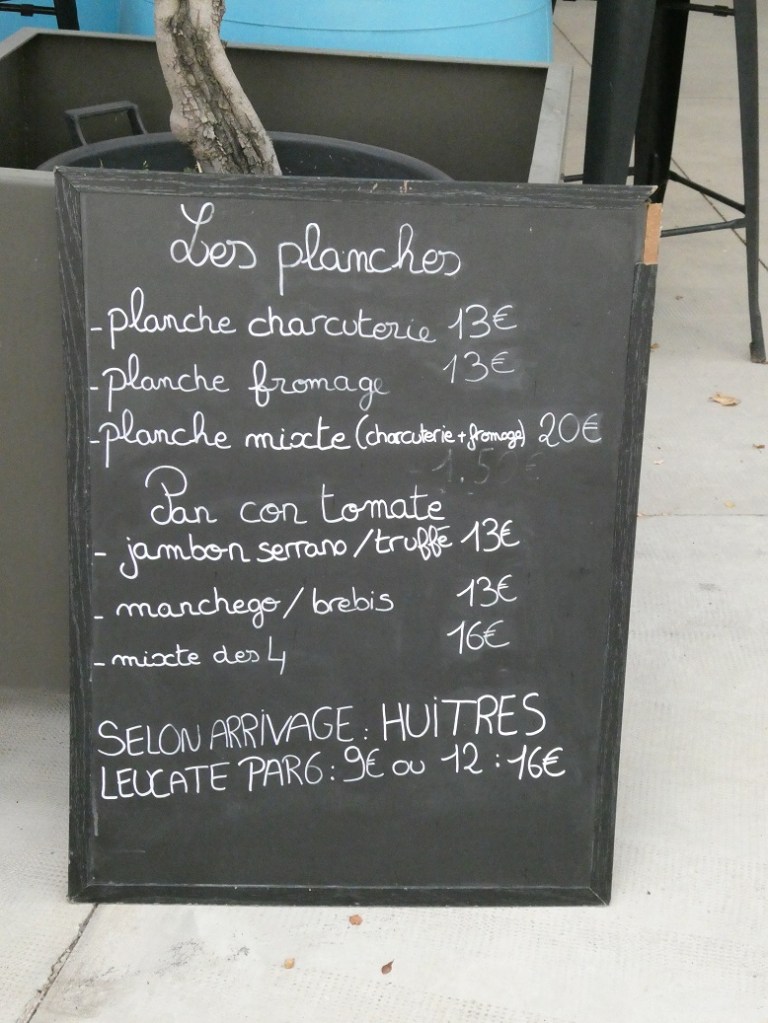 Les planches
- planche charcuterie 13€
- planche fromage 13€
- planche mixte (charcuterie + fromage) 20€
1.50€
Pan con tomate
- jambon serrano / truffé 13€
- manchego / brebis 13€
- mixte des 4 16€
SELON ARRIVAGE : HUITRES
LEUCATE PAR 6 : 9€ ou 12 : 16€